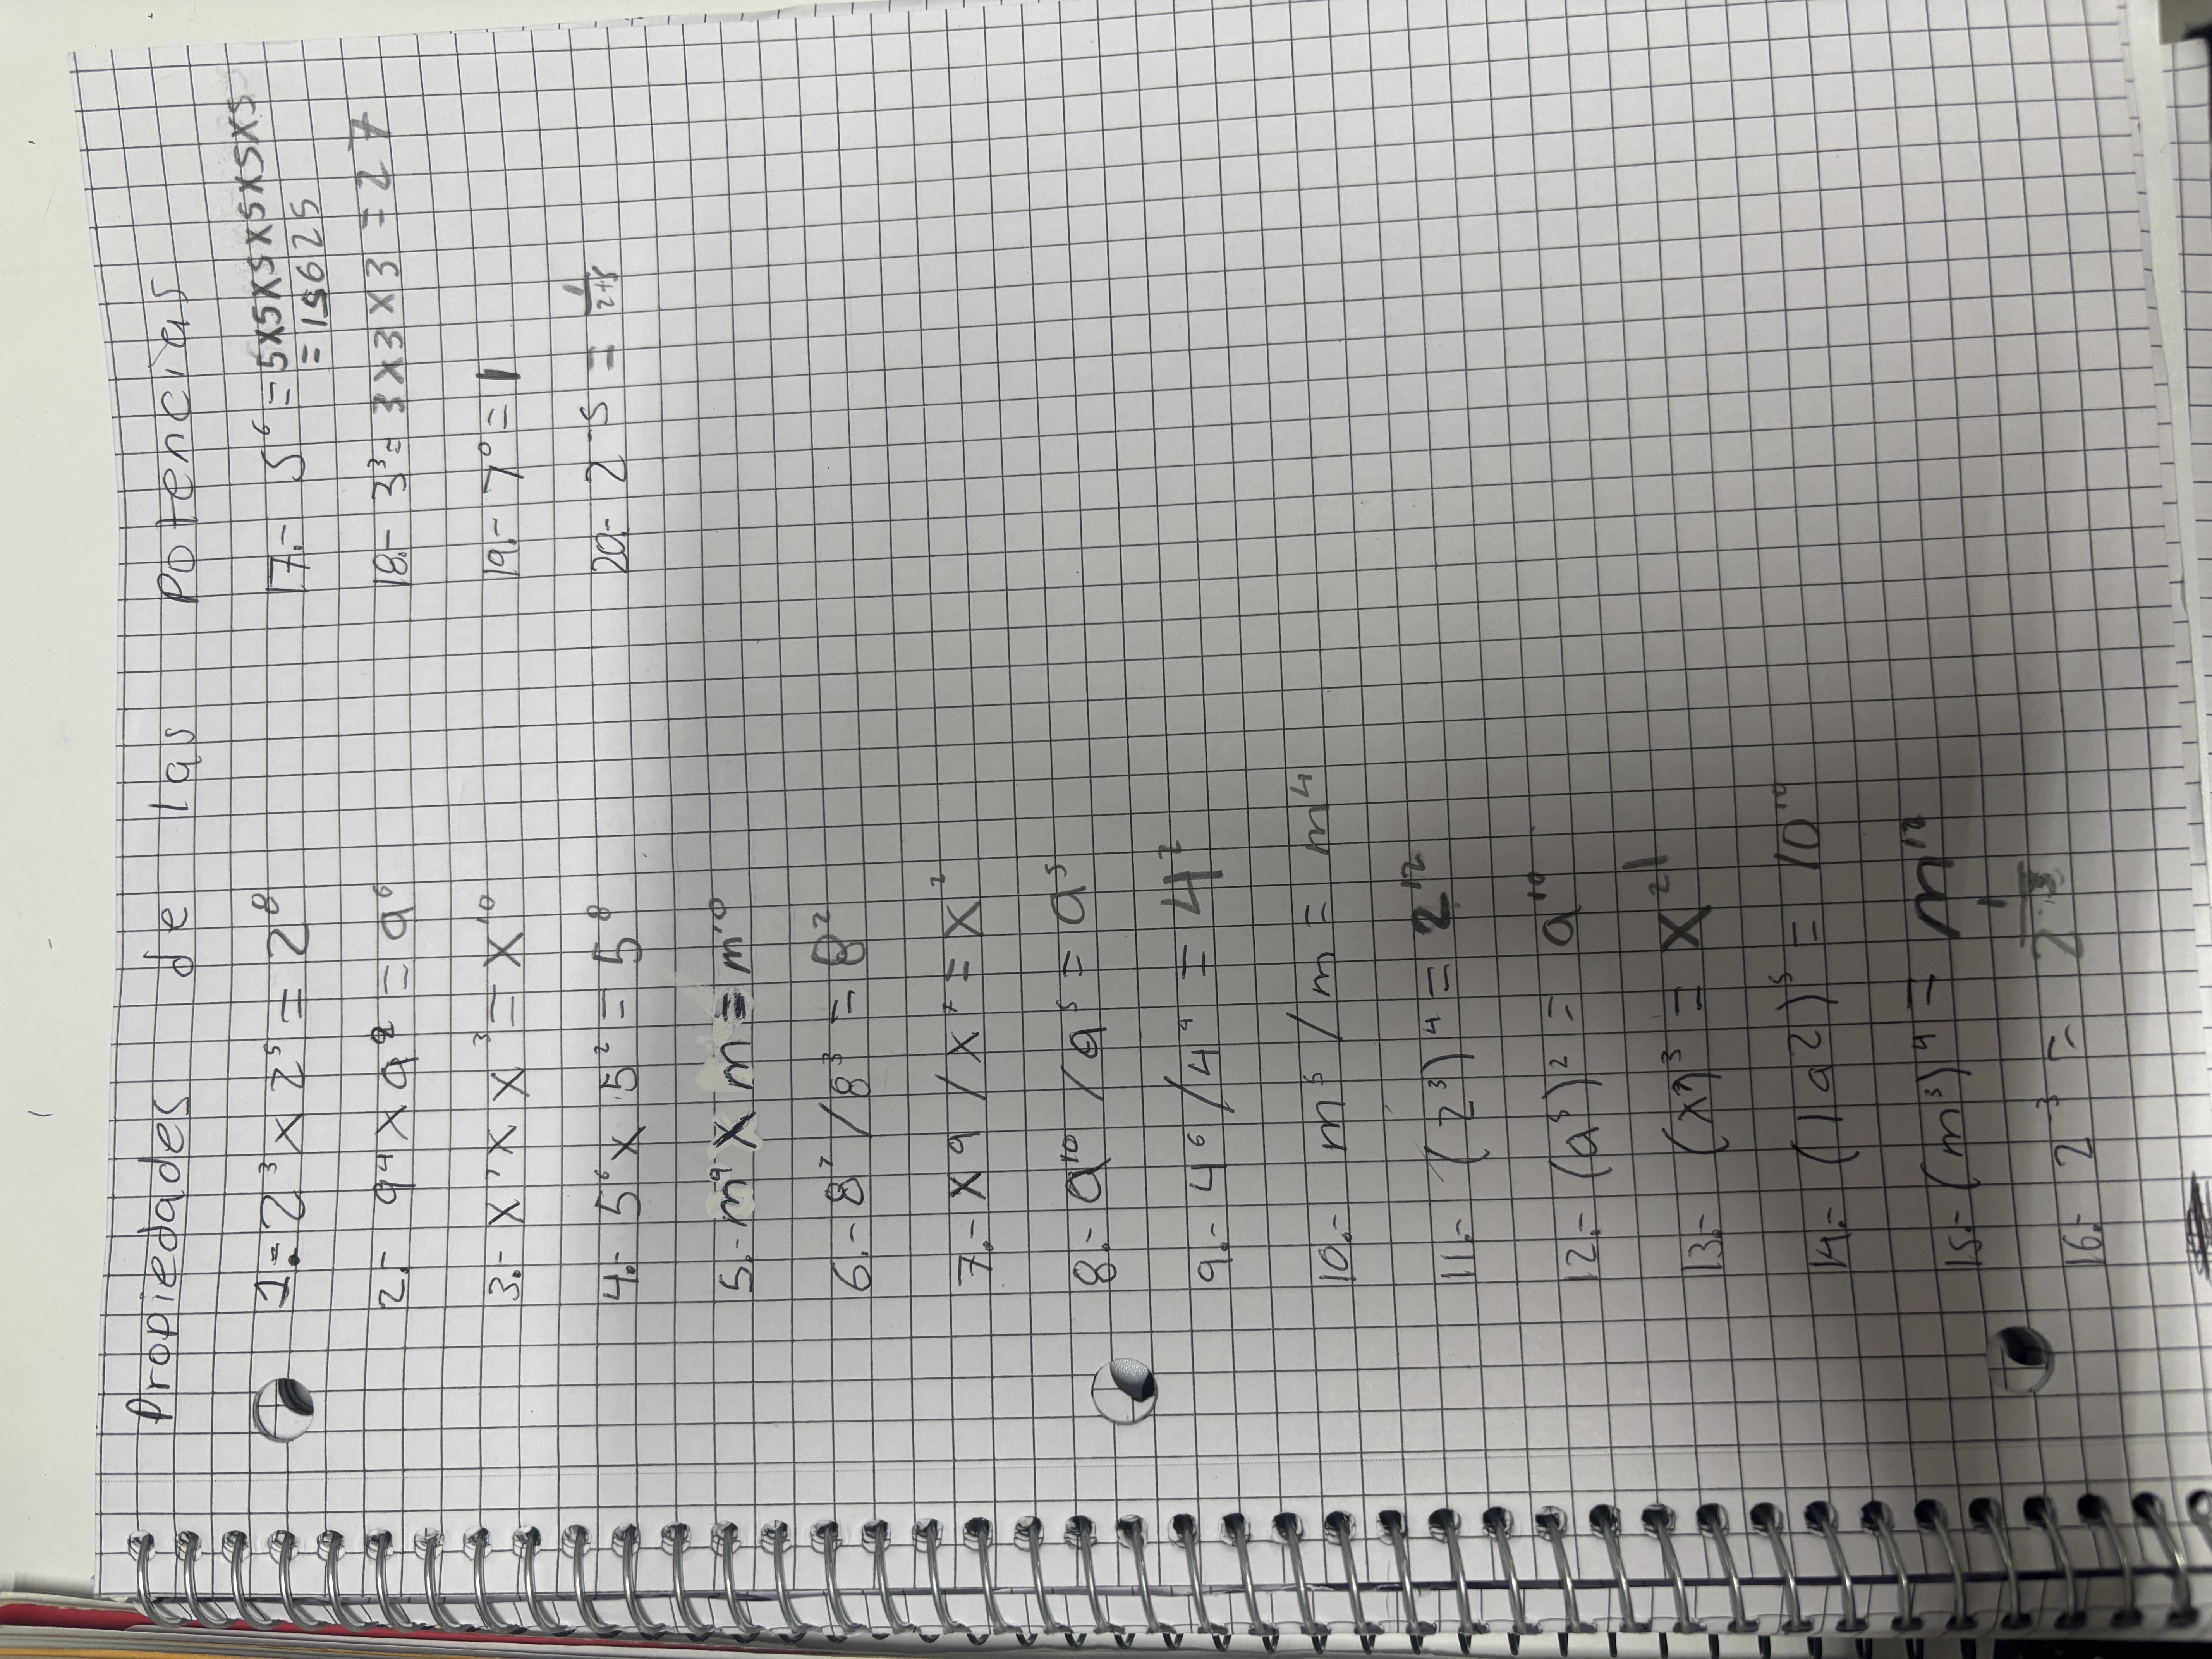 Propiedades de las Potencias
1.- 2³ x 2⁵ = 2⁸
2.- a⁴ x a² = a⁶
3.- x⁷ x x³ = x¹⁰
4.- 5⁶ x 5² = 5⁸
5.- m⁹ x m = m¹⁰
6.- 8⁷ / 8³ = 8²
7.- x⁹ / x⁷ = x²
8.- a¹⁰ / a⁵ = a⁵
9.- 4⁶ / 4⁴ = 4²
10.- m⁵ / m = m⁴
11.- (2³)⁴ = 2¹²
12.- (a⁵)² = a¹⁰
13.- (x⁷)³ = x²¹
14.- (1a2)⁵ = 10¹⁰
15.- (m³)⁴ = m¹²
16.- 2⁻³ =
17.- 5⁶ = 5x5x5x5x5x5x5
= 15625
18.- 3³ = 3x3x3 = 27
19.- 7⁰ = 1
20.- 2⁻⁵ = 1/2+5